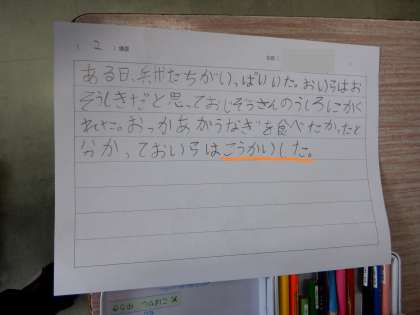 ( 2 )場面
ある日、糸たちがいっぱいいた。おい弓はお
そうしきだと思っておじぞうさんのうしろにかく
れた。おっかあがうなぎを食べたかったと
分かっておい弓はこうかいした。